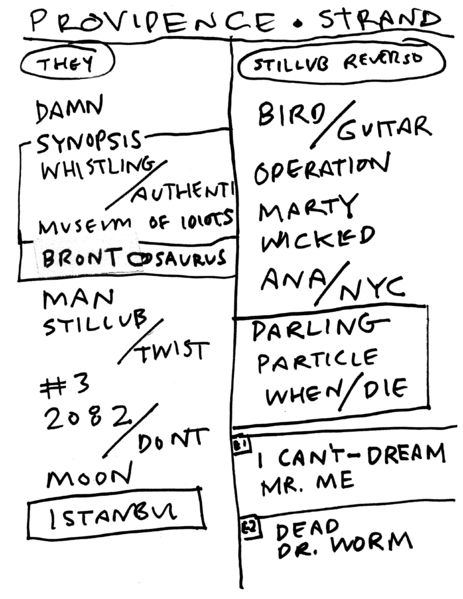 PROVIDENCE • STRAND
THEY
DAMN
SYNOPSIS
WHISTLING/
AUTHENTI
MUSEUM OF IDIOTS
BRONTOSAURUS
MAN
STILLUB/
TWIST
#3
2082/
DONT
MOON
ISTANBUL
STILLUB REVERSO
BIRD/
GUITAR
OPERATION
MARTY
WICKED
ANA/NYC
DARLING
PARTICLE
WHEN/DIE
E1
I CAN'T-DREAM
MR. ME
E2
DEAD
DR. WORM